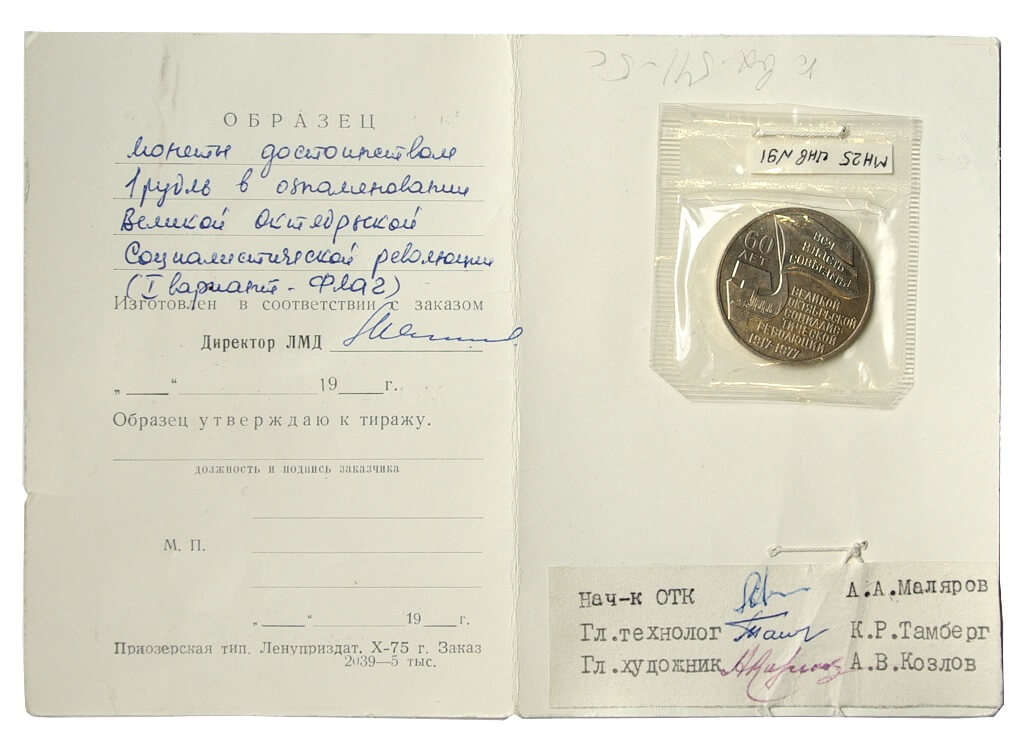 ОБРАЗЕЦ
монеты достоинством
1 рубль в ознаменовании
Великой Октябрьской
Социалистической революции
(I вариант - Флаг)
Изготовлен в соответствии с заказом
Директор ЛМД
„ “ 19 г.
Образец утверждаю к тиражу.
должность и подпись заказчика
М. П.
„ “ 19 г.
Приозерская тип. Ленуприздат. X-75 г. Заказ
2039—5 тыс.
МН25 ИНВ N91
60
ЛЕТ
ВСЯ
ВЛАСТЬ
СОВЕТАМ!
ВЕЛИКОЙ
ОКТЯБРЬСКОЙ
СОЦИАЛИС-
ТИЧЕСКОЙ
РЕВОЛЮЦИИ
1917-1977
Нач-к ОТК А.А.Маляров
Гл.технолог К.Р.Тамберг
Гл.художник А.В.Козлов